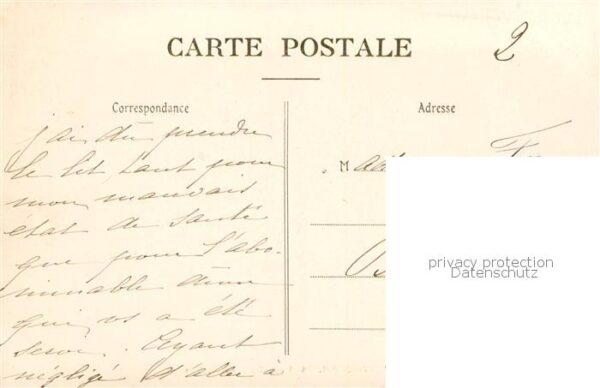 CARTE POSTALE
2
Correspondance
Adresse
j'ai dû prendre
le lit tant pour
mon mauvais
état de santé
que pour l'abo-
minable
qui vs a été
servi. Ayant
négligé d'aller à
M
privacy protection
Datenschutz